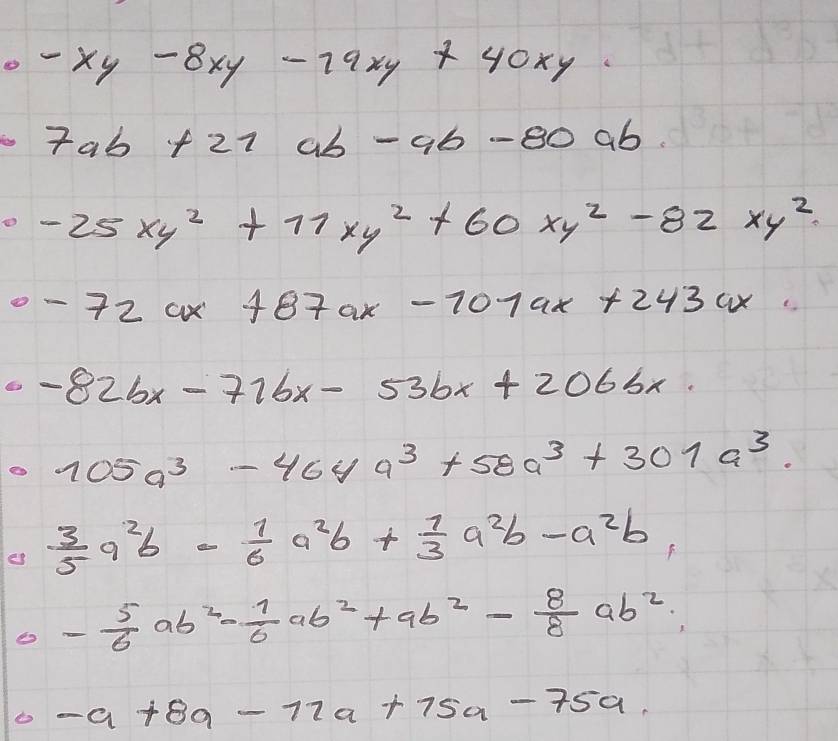 • -xy -8xy -19xy + 40xy.
• 7ab + 21 ab - ab - 80 ab.
• -25 xy² + 11 xy² + 60 xy² - 82 xy².
• -72 ax + 87ax - 101ax + 243 ax.
• -82bx - 71bx - 53bx + 206bx.
• 105a³ - 464 a³ + 58a³ + 301 a³.
• 3/5 a²b - 1/6 a²b + 1/3 a²b - a²b,
• - 5/6 ab² - 1/6 ab² + ab² - 8/8 ab².,
• -a + 8a - 11a + 15a - 75a.